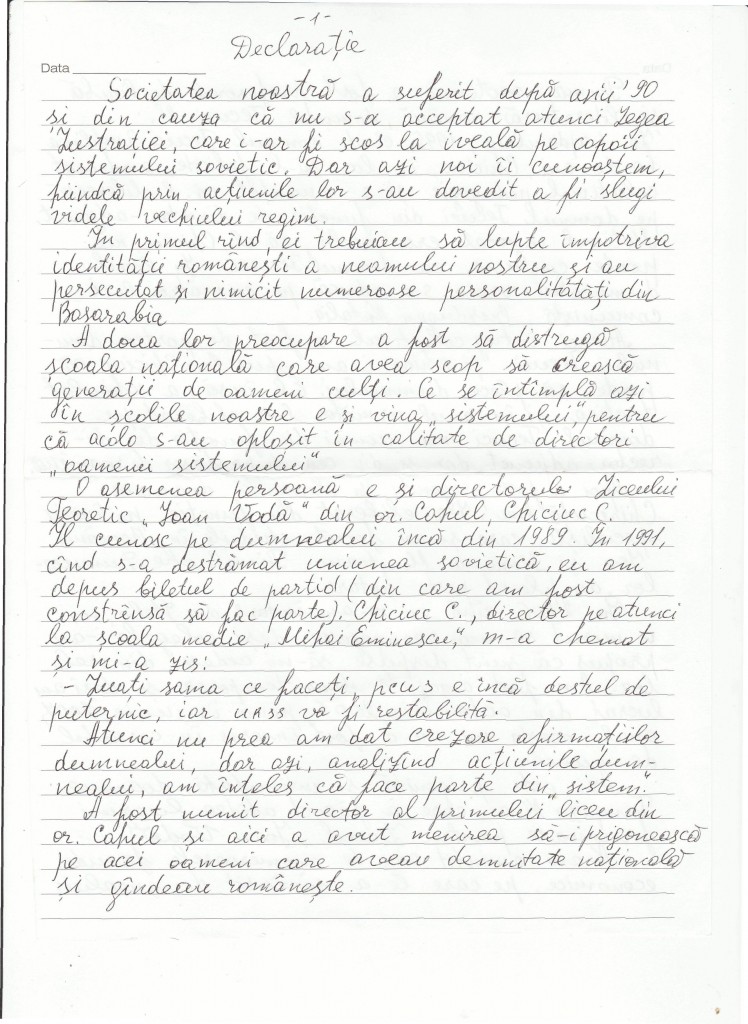 -1-
Declarație
Data
Societatea noastră a suferit după anii '90
și din cauza că nu s-a acceptat atunci Legea
Lustrației, care i-ar fi scos la iveală pe copoii
sistemului sovietic. Dar azi noi îi cunoaștem,
fiindcă prin acțiunile lor s-au dovedit a fi slugi
videle vechiului regim.
În primul rînd, ei trebuiau să lupte împotriva
identității românești a neamului nostru și au
persecutat și nimicit numeroase personalitătăți din
Basarabia
A doua lor preocupare a fost să distrugă
școala națională care avea scop să crească
generații de oameni culți. Ce se întîmplă azi
în școlile noastre e și vina „sistemului", pentru
că acolo s-au oploșit în calitate de directori
„oamenii sistemului"
O asemenea persoană e și directorul Liceului
Teoretic „Ioan Vodă" din or. Cahul, Chiciuc C.
Îl cunosc pe dumnealui încă din 1989. În 1991,
cînd s-a destrămat uniunea sovietică, eu am
depus biletul de partid (din care am fost
constrînsă să fac parte). Chiciuc C., director pe atunci
la școala medie „Mihai Eminescu", m-a chemat
și mi-a zis:
- Luați sama ce faceți, pcus e încă destul de
puternic, iar urss va fi restabilită.
Atunci nu prea am dat crezare afirmațiilor
dumnealui, dar azi, analizînd acțiunile dum-
nealui, am înțeles că face parte din „sistem".
A fost numit director al primului liceu din
or. Cahul și aici a avut menirea să-i prigonească
pe acei oameni care aveau demnitate națională
și gîndeau românește.